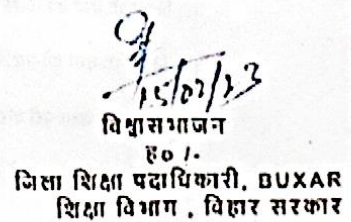 15/02/23
विश्वासभाजन
ह० /-
जिला शिक्षा पदाधिकारी, BUXAR
शिक्षा विभाग, बिहार सरकार